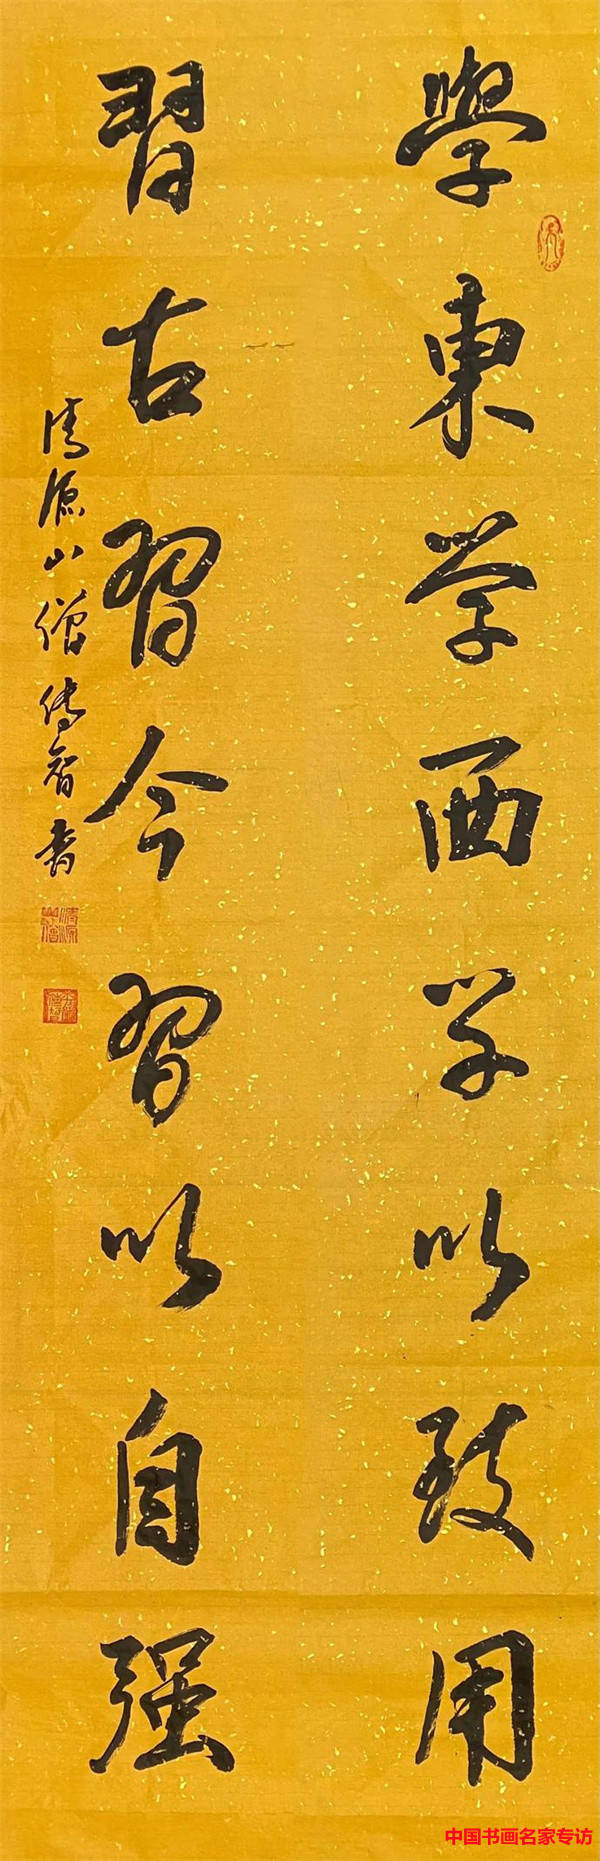 學東学西学以致用
習古習今習以自强
清源山僧传智书
中国书画名家专访